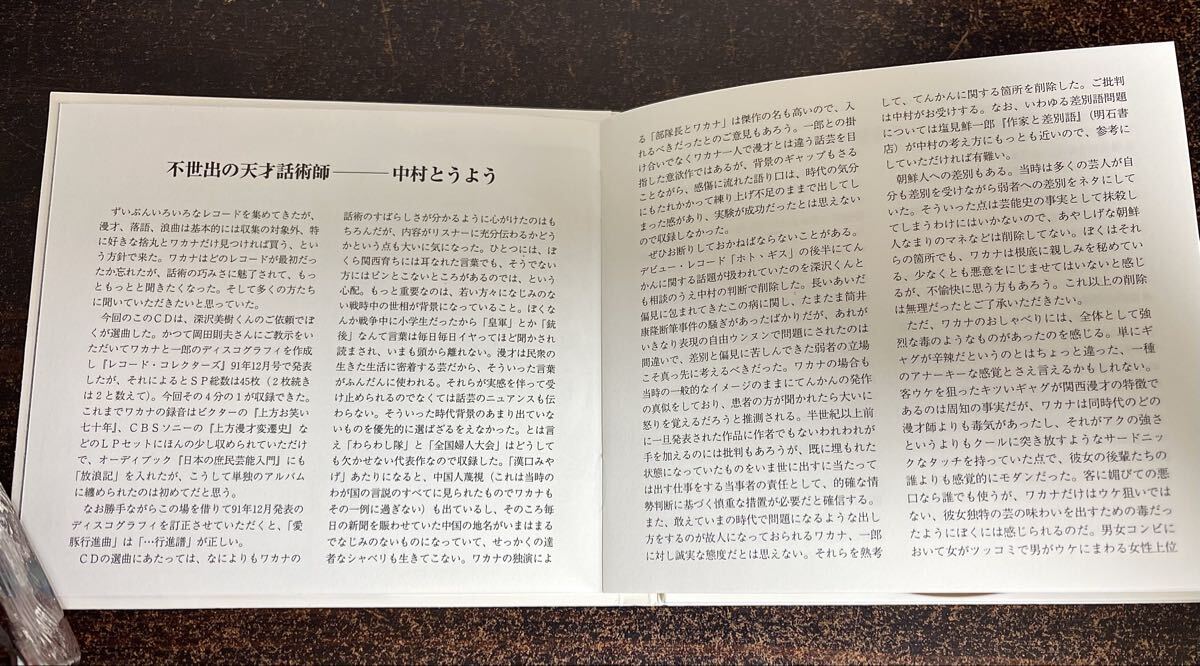 不世出の天才話術師―――中村とうよう
ずいぶんいろいろなレコードを集めてきたが、
漫才、落語、浪曲は基本的には収集の対象外、特
に好きな捨丸とワカナだけ見つければ買う、とい
う方針で来た。ワカナはどのレコードが最初だっ
たか忘れたが、話術の巧みさに魅了されて、もっ
ともっとと聞きたくなった。そして多くの方たち
に聞いていただきたいと思っていた。
今回のこのCDは、深沢美樹くんのご依頼でぼ
くが選曲した。かつて岡田則夫さんにご教示をい
ただいてワカナと一郎のディスコグラフィを作成
し『レコード・コレクターズ』91年12月号で発表
したが、それによるとSP総数は45枚（２枚続き
は２と数えて）。今回その４分の１が収録できた。
これまでワカナの録音はビクターの『上方お笑い
七十年』、CBSソニーの『上方漫才変遷史』な
どのLPセットにほんの少し収められていただけ
で、オーディブック『日本の庶民芸能入門』にも
「放浪記」を入れたが、こうして単独のアルバム
に纏められたのは初めてだと思う。
なお勝手ながらこの場を借りて91年12月発表の
ディスコグラフィを訂正させていただくと、「愛
豚行進曲」は「…行進譜」が正しい。
CDの選曲にあたっては、なによりもワカナの
話術のすばらしさが分かるように心がけたのはも
ちろんだが、内容がリスナーに充分伝わるかどう
かという点も大いに気になった。ひとつには、ぼ
くら関西育ちには耳なれた言葉でも、そうでない
方にはピンとこないところがあるのでは、という
心配。もっと重要なのは、若い方々になじみのな
い戦時中の世相が背景になっていること。ぼくな
んか戦争中に小学生だったから「皇軍」とか「銃
後」なんて言葉は毎日毎日イヤってほど聞かされ
読まされ、いまも頭から離れない。漫才は民衆の
生きた生活に密着する芸だから、そういった言葉
がふんだんに使われる。それらが実感を伴って受
け止められるのでなくては話芸のニュアンスも伝
わらない。そういった時代背景のあまり出ていな
いものを優先的に選ばざるをえなかった。とは言
え「わらわし隊」と「全国婦人大会」はどうして
も欠かせない代表作なので収録した。「漢口みや
げ」あたりになると、中国人蔑視（これは当時の
わが国の言説のすべてに見られたものでワカナも
その一例に過ぎない）も出ているし、そのころ毎
日の新聞を賑わせていた中国の地名がいまはまる
でなじみのないものになっていて、せっかくの達
者なシャベリも生きてこない。ワカナの独演によ
る「部隊長とワカナ」は傑作の名も高いので、入
れるべきだったとのご意見もあろう。一郎との掛
け合いでなくワカナ一人で漫才とは違う話芸を目
指した意欲作ではあるが、背景のギャップもさる
ことながら、感傷に流れた語り口は、時代の気分
にもたれかかって練り上げ不足のままで出してし
まった感があり、実験が成功だったとは思えない
ので収録しなかった。
ぜひお断りしておかねばならないことがある。
デビュー・レコード「ホト、ギス」の後半にてん
かんに関する話題が扱われていたのを深沢くんと
も相談のうえ中村の判断で削除した。長いあいだ
偏見に包まれてきたこの病に関し、たまたま筒井
康隆断筆事件の騒ぎがあったばかりだが、あれが
いきなり表現の自由ウンヌンで問題にされたのは
間違いで、差別と偏見に苦しんできた弱者の立場
こそ真っ先に考えるべきだった。ワカナの場合も
当時の一般的なイメージのままにてんかんの発作
の真似をしており、患者の方が聞かれたら大いに
怒りを覚えるだろうと推測される。半世紀以上前
に一旦発表された作品に作者でもないわれわれが
手を加えるのには批判もあろうが、既に埋もれた
状態になっていたものをいま世に出すに当たって
は出す仕事をする当事者の責任として、的確な情
勢判断に基づく慎重な措置が必要だと確信する。
また、敢えていまの時代で問題になるような出し
方をするのが故人になっておられるワカナ、一郎
に対し誠実な態度だとは思えない。それらを熟考
して、てんかんに関する箇所を削除した。ご批判
は中村がお受けする。なお、いわゆる差別語問題
については塩見鮮一郎『作家と差別語』（明石書
店）が中村の考え方にもっとも近いので、参考に
していただければ有難い。
朝鮮人への差別もある。当時は多くの芸人が自
分も差別を受けながら弱者への差別をネタにして
いた。そういった点は芸能史の事実として抹殺し
てしまうわけにはいかないので、あやしげな朝鮮
人なまりのマネなどは削除してない。ぼくはそれ
らの箇所でも、ワカナは根底に親しみを秘めてい
る、少なくとも悪意をにじませてはいないと感じ
るが、不愉快に思う方もあろう。これ以上の削除
は無理だったとご了承いただきたい。
ただ、ワカナのおしゃべりには、全体として強
烈な毒のようなものがあったのを感じる。単にギ
ャグが辛辣だというのとはちょっと違った、一種
のアナーキーな感覚とさえ言えるかもしれない。
客ウケを狙ったキツいギャグが関西漫才の特徴で
あるのは周知の事実だが、ワカナは同時代のどの
漫才師よりも毒気があったし、それがアクの強さ
というよりもクールに突き放すようなサードニッ
クなタッチを持っていた点で、彼女の後輩たちの
誰よりも感覚的にモダンだった。客に媚びての悪
口なら誰でも使うが、ワカナだけはウケ狙いでは
ない、彼女独特の芸の味わいを出すための毒だっ
たようにぼくには感じられるのだ。男女コンビに
おいて女がツッコミで男がウケにまわる女性上位